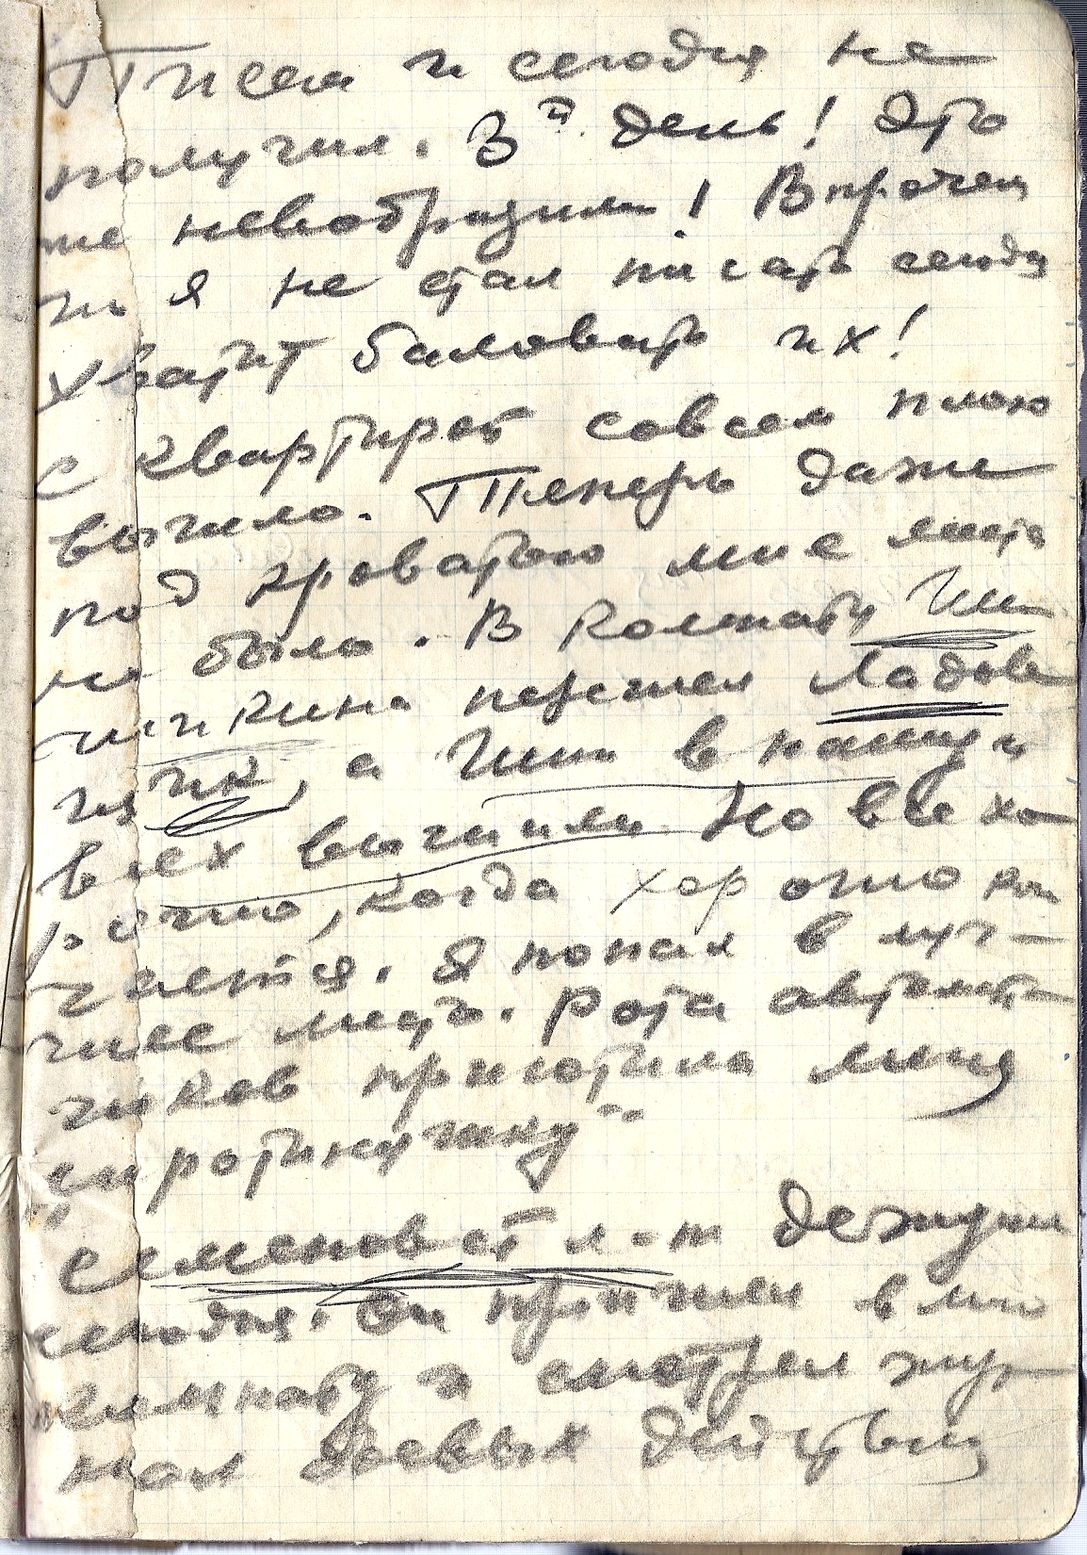 Писем и сегодня не
получил. 3й день! Это
же невообразимо! Впрочем
и я не стал писать сегодня
хватит баловать их!
С квартирой совсем плохо
вышло. Теперь даже
под кроватью мне места
не было. В комнату Шиш
пришел Ладов
щик, а Шиш в нашу и
всех выгнали. Но все хо
рошо, когда хорошо кон
чается. Я попал в луч-
шее место. Рота автомат-
чиков приютила меня
„сиротинушку“
Семеновский л-т дежурит
сегодня. Он пришел в мою
комнату и смотрел жур-
нал боевых действий